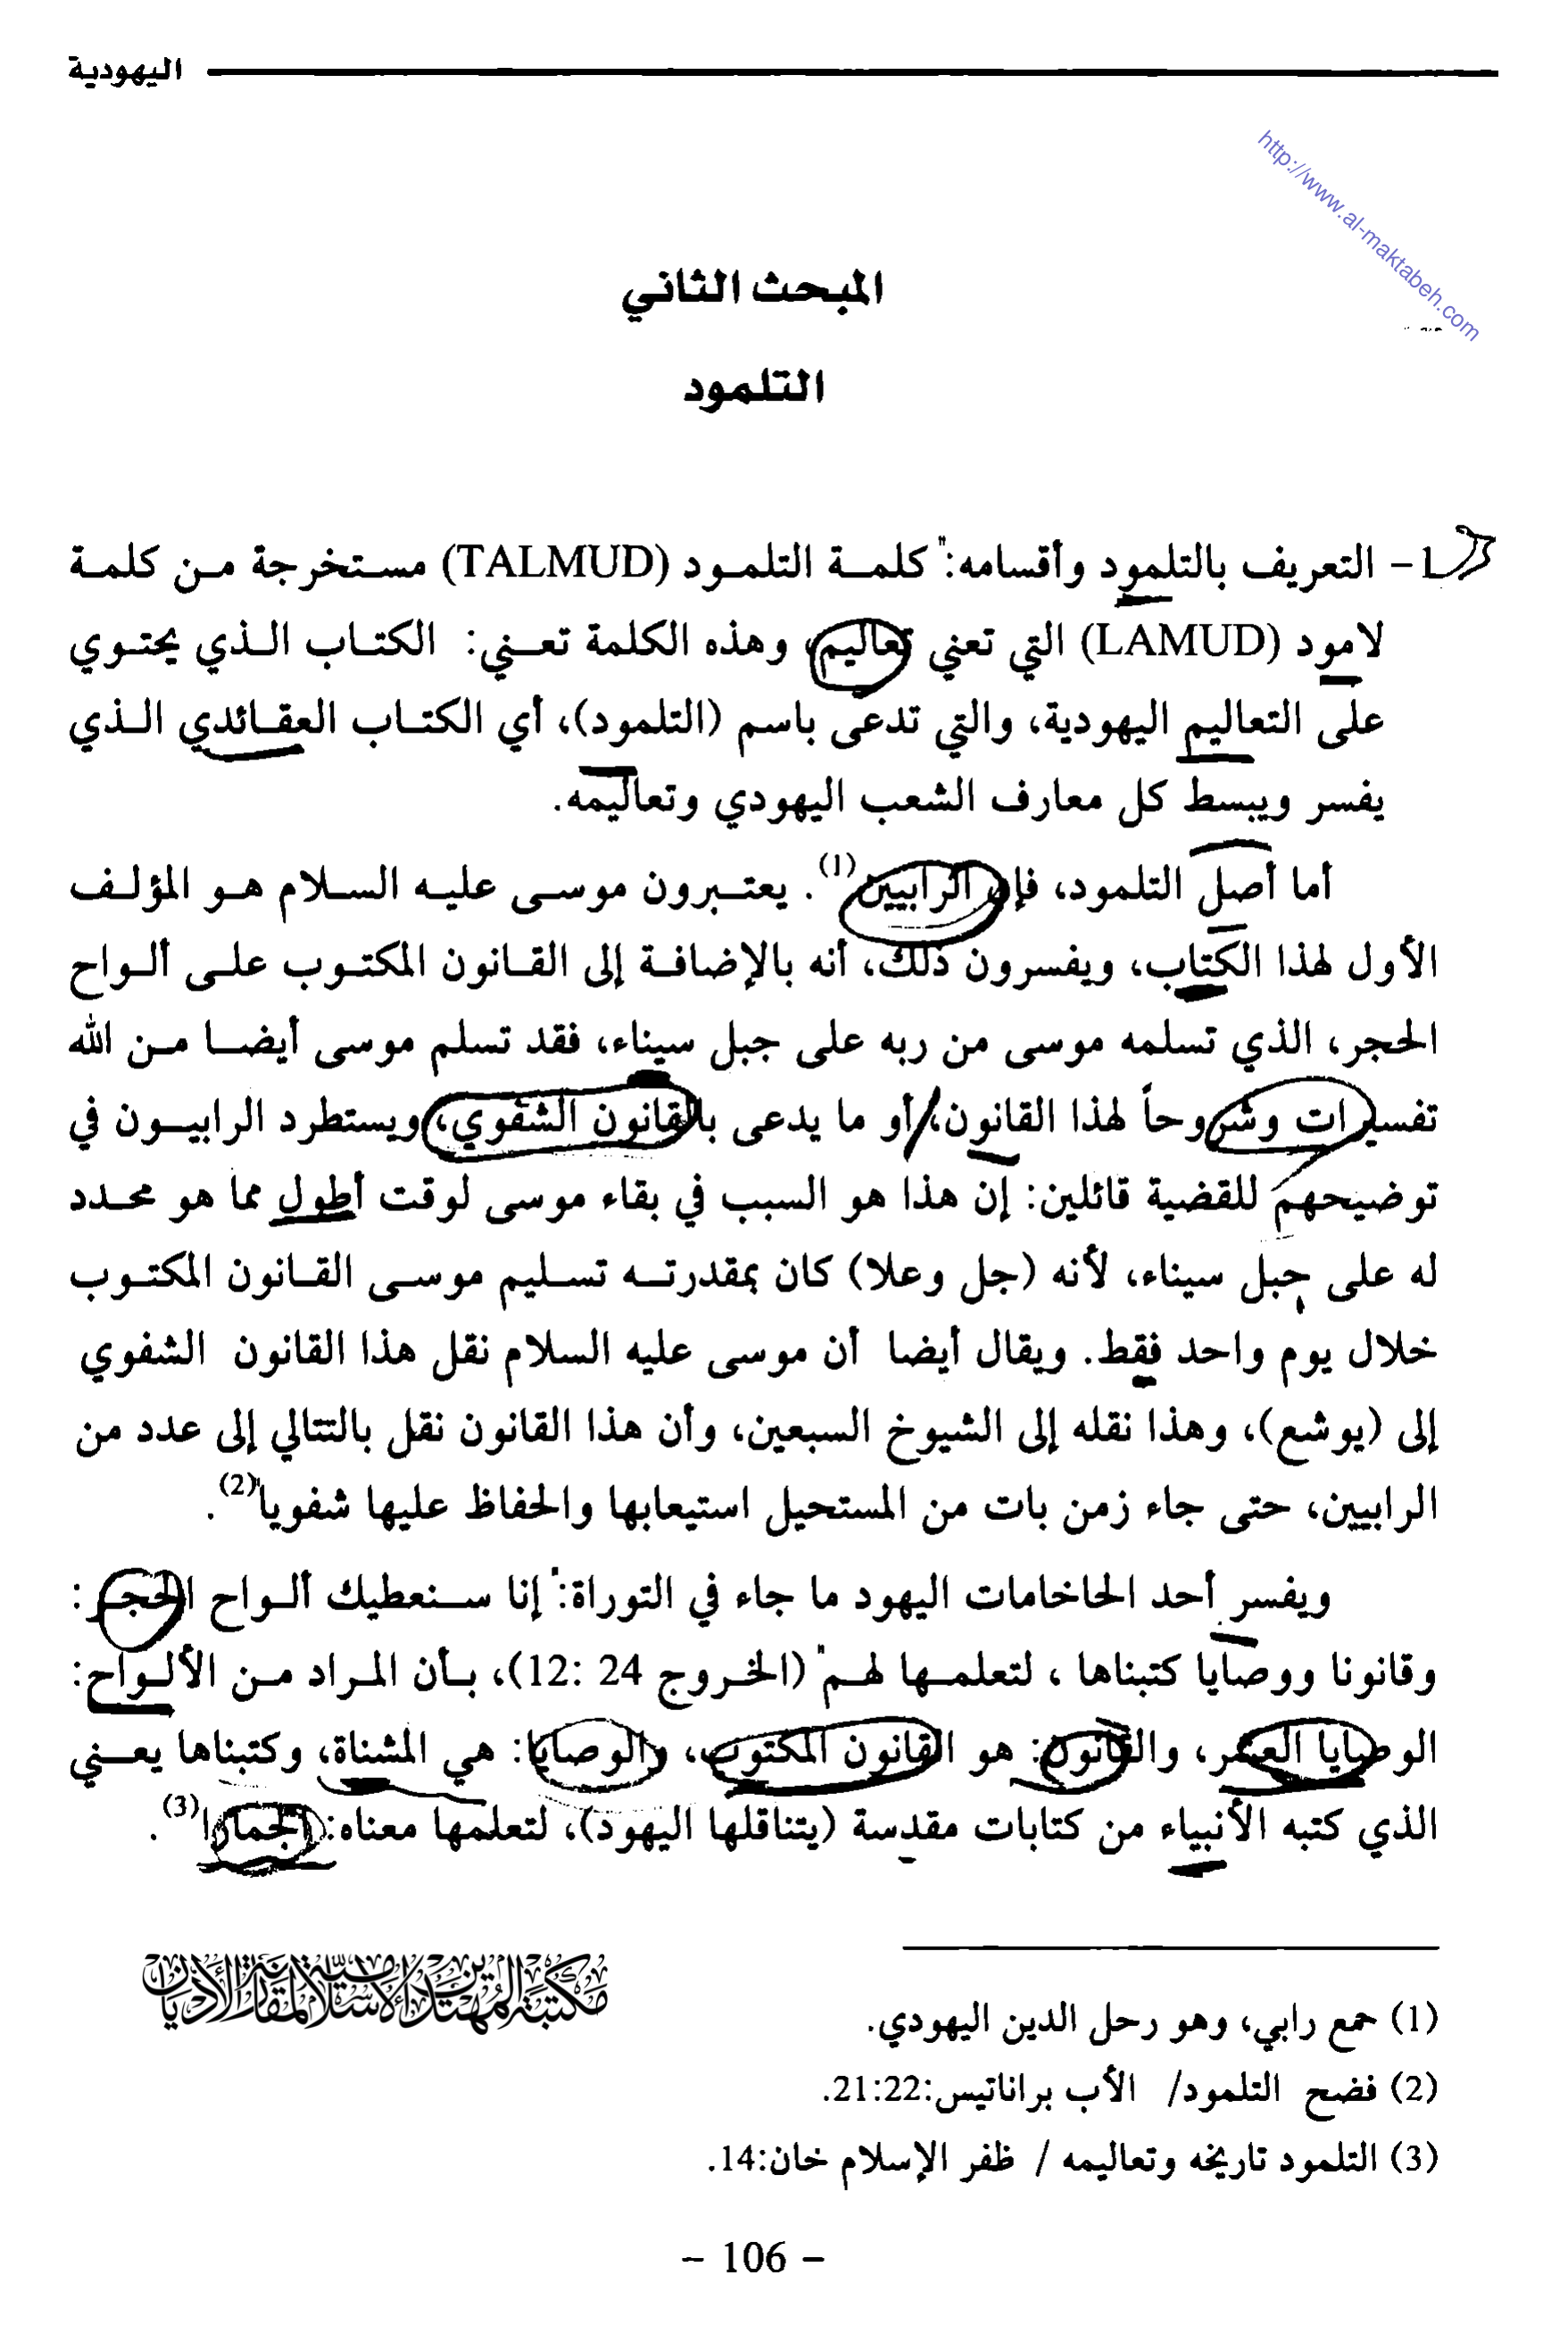 اليهودية
http://www.al-maktabeh.com
المبحث الثاني
التلمود
1- التعريف بالتلمود وأقسامه:" كلمة التلمود (TALMUD) مستخرجة من كلمة
لامود (LAMUD) التي تعني تعاليم، وهذه الكلمة تعني: الكتاب الذي يحتوي
على التعاليم اليهودية، والتي تدعى باسم (التلمود)، أي الكتاب العقائدي الذي
يفسر ويبسط كل معارف الشعب اليهودي وتعاليمه.
أما أصل التلمود، فإن الرابيين(1). يعتبرون موسى عليه السلام هو المؤلف
الأول لهذا الكتاب، ويفسرون ذلك، أنه بالإضافة إلى القانون المكتوب على ألواح
الحجر، الذي تسلمه موسى من ربه على جبل سيناء، فقد تسلم موسى أيضا من الله
تفسيرات وشروحاً لهذا القانون، أو ما يدعى بالقانون الشفوي، ويستطرد الرابيون في
توضيحهم للقضية قائلين: إن هذا هو السبب في بقاء موسى لوقت أطول مما هو محدد
له على جبل سيناء، لأنه (جل وعلا) كان بمقدرته تسليم موسى القانون المكتوب
خلال يوم واحد فقط. ويقال أيضا أن موسى عليه السلام نقل هذا القانون الشفوي
إلى (يوشع)، وهذا نقله إلى الشيوخ السبعين، وأن هذا القانون نقل بالتتالي إلى عدد من
الرابيين، حتى جاء زمن بات من المستحيل استيعابها والحفاظ عليها شفويا"(2).
ويفسر أحد الحاخامات اليهود ما جاء في التوراة:" إنا سنعطيك ألواح الحجر:
وقانونا ووصايا كتبناها ، لتعلمها لهم" (الخروج 24 :12)، بأن المراد من الألواح:
الوصايا العشر، والقانون: هو القانون المكتوب، والوصايا: هي المشناة، وكتبناها يعني
الذي كتبه الأنبياء من كتابات مقدسة (يتناقلها اليهود)، لتعلمها معناه: الجمارا(3).
مكتبة المهتدين الإسلامية لمقارنة الأديان
(1) جمع رابي، وهو رحل الدين اليهودي.
(2) فضح التلمود/ الأب براناتيس:21:22.
(3) التلمود تاريخه وتعاليمه / ظفر الإسلام خان:14.
- 106 -